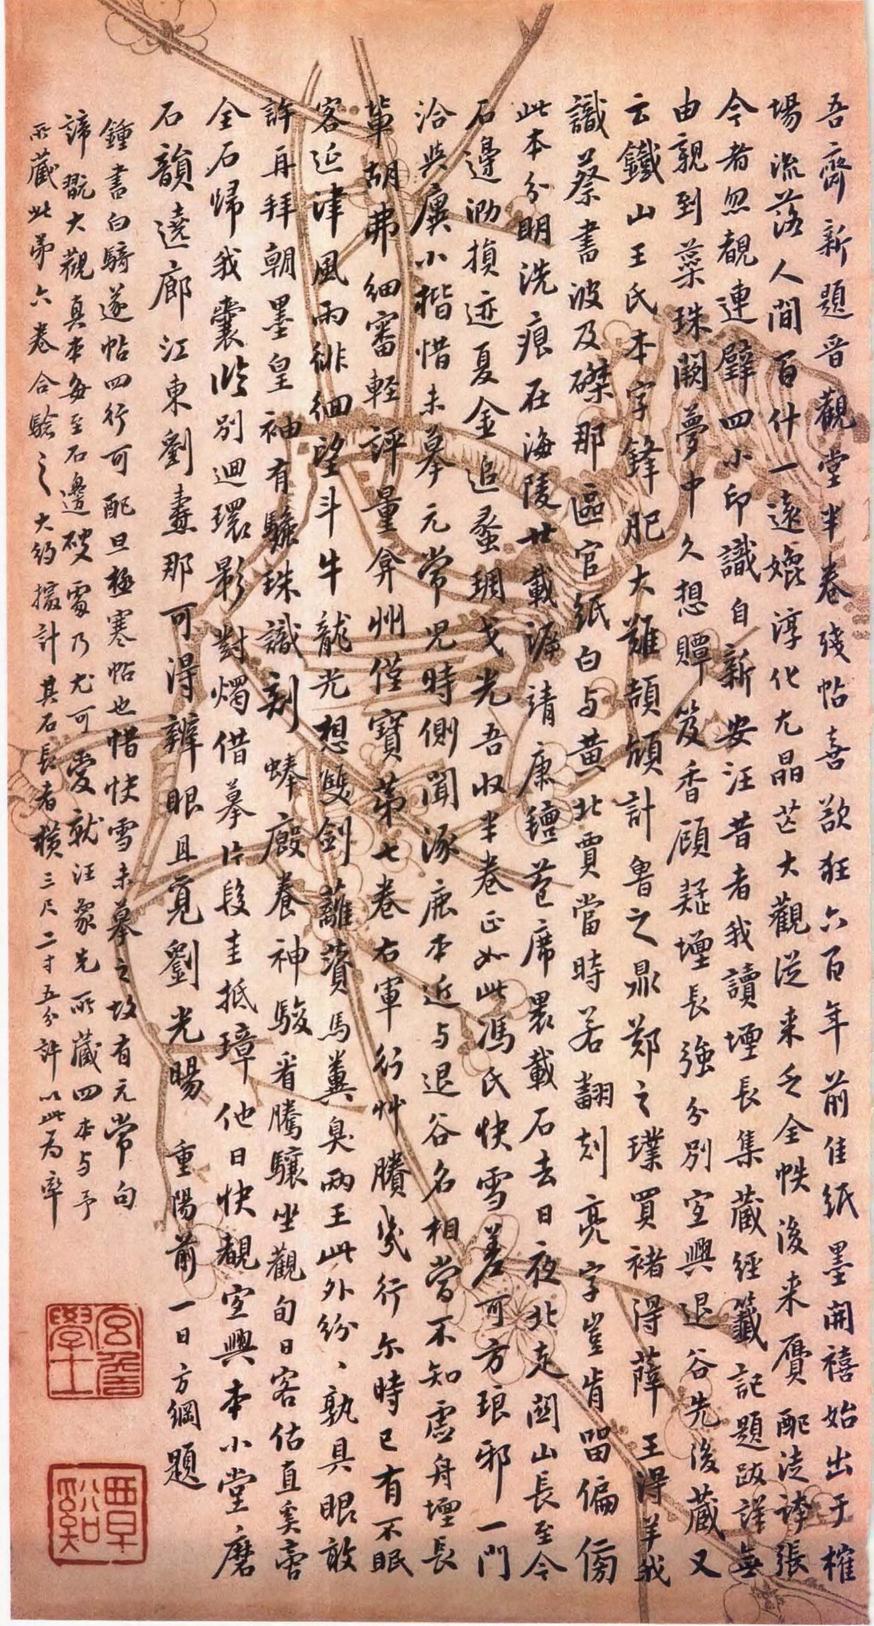 吾齋新題晉觀堂半卷殘帖喜欲狂六百年前佳紙墨開禧始出于榷
場流落人間百什一遠嬔淳化尤晶芒大觀從来乏全帙後来贗配徒誇張
今者忽覩連璧四小印識自新安汪昔者我讀堙長集藏經籤記題跋詳無
由親到蘂珠闕夢中久想贉笈香頋疑堙長強分別宣興退谷先後藏又
云鐵山王氏本字鋒肥大難頡頏計魯之鼎鄭之璞買褚得薛王得羊我
識蔡書波及磔那區官紙白与黃北賈當時若翻刻亮字豈肯留偏傍
此本分明洗痕在海陵廿載溯靖康氊苞席裹載石去日夜北走関山長至今
石邊泐損迹夏金追蠡琱戈光吾収半卷正如此馮氏快雪差可方琅邪一門
洽與廙小楷惜未摹元常兒時側聞涿鹿本近与退谷名相當不知虛舟堙長
輩胡弗細審輕評量弇州僅寶第七卷右軍行艸賸幾行尓時已有不眠
客延津風雨徘徊望斗牛龍光想雙劍蘸漬馬糞臭兩王此外紛〻孰具眼敢
許再拜朝墨皇袖有驪珠識刻蜯廄養神駿看騰驤坐觀旬日客估直奚啻
全石歸我囊臨別迴環影對燭借摹片段圭抵璋他日快覩宣興本小堂磨
石韻遶廊江東劉燾那可得辦眼且覓劉光暘 重陽前一日方綱題
鍾書白騎遂帖四行可配旦極寒帖也惜快雪未摹之故有元常句
諦翫大觀真本每至石邊破處乃尤可愛就汪象先所藏四本与予
所藏此第六卷合驗之大約擋計其石長者橫三尺二寸五分許以此為率
覃谿